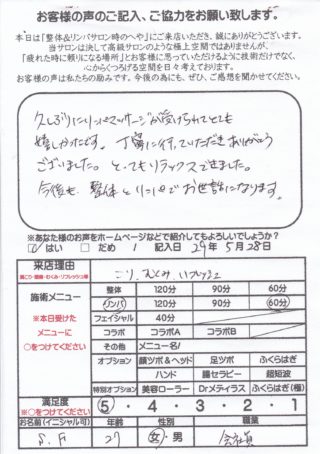 お客様の声のご記入、ご協力をお願い致します。
本日は「整体&リンパサロン時のへや」にご来店いただき、誠にありがとうございます。
当サロンは決して高級サロンのような極上空間ではありませんが、
「疲れた時に頼りになる場所」とお客様に思っていただけるように技術だけでなく、
心からくつろげる空間を日々考えております。
お客様の声は私たちの励みです。今後の為にも、ぜひ、ご感想を聞かせてください。
久しぶりにリンパマッサージが受けられてとても
嬉しかったです。丁寧に行っていただきありがとう
ございました。とてもリラックスできました。
今後も、整体とリンパでお世話になります。
※あなた様のお声をホームページなどで紹介してもよろしいでしょうか?
はい □ だめ / 記入日 29年 5月 28日
来店理由
肩こり・腰痛・むくみ・リフレッシュ等
こり、むくみ、リフレッシュ
施術メニュー
※本日受けた
メニューに
○をつけてください
整体 120分 90分 60分
リンパ 120分 90分 60分
フェイシャル 40分
コラボ コラボA コラボB
その他 メニュー名/
オプション 顔ツボ&ヘッド 足ツボ ふくらはぎ
ハンド 腸セラピー 超短波
特別オプション 美容ローラー Drメディラス ふくらはぎ(極)
満足度
※○をつけてください
5・4・3・2・1
お名前(イニシャル可) 年齢 性別 職業
S.F 27 女・男 会社員